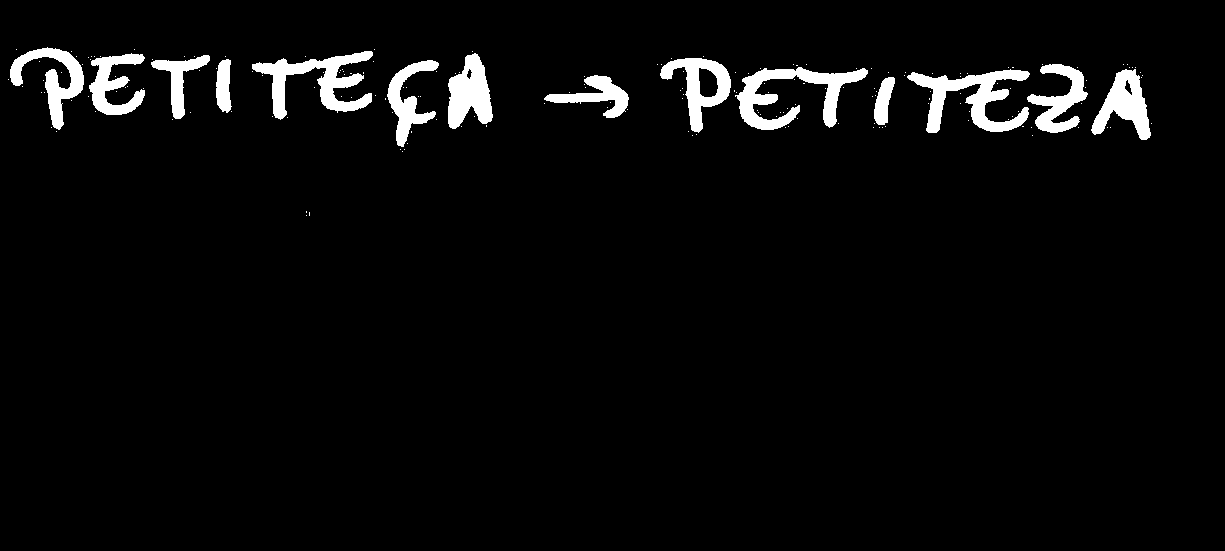 PETITEÇA → PETITEZA